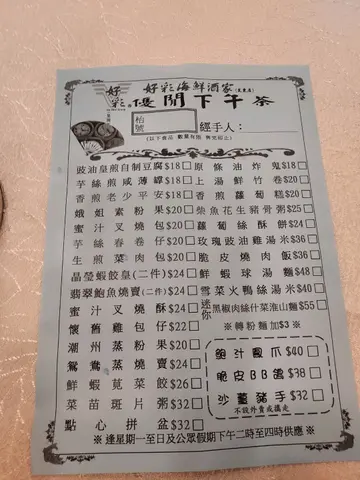 好彩海鮮酒家
好彩
優閒下午茶
枱號
經手人：
豉油皇煎自制豆腐$18
芋絲煎咸薄罉$18
香煎老少平安$18
娥姐素粉果$20
蜜汁叉燒包$20
芋絲春卷仔$20
生煎菜肉包$20
晶瑩蝦餃皇(二件)$24
翡翠鮑魚燒賣(二件)$24
蜜汁叉燒酥$24
懷舊雞包仔$22
潮州蒸粉果$20
鴛鴦蒸燒賣$24
鮮蝦莧菜餃$26
菜苗斑片粥$32
點心拼盆$32
原條油炸鬼$18
上湯鮮竹卷$20
香煎蘿蔔糕$20
柴魚花生豬骨粥$25
蘿蔔絲酥餅$24
玫瑰豉油雞湯米$36
脆皮燒肉飯$36
鮮蝦球湯麵$48
雪菜火鴨絲湯米$40
迷你
黑椒肉絲什菜淮山麵$55
※轉粉麵加$3※
鮑汁鳳爪$40
脆皮BB鴿$38
沙薑豬手$32
不設外賣或攜走
※逢星期一至日及公眾假期下午二時至四時供應※